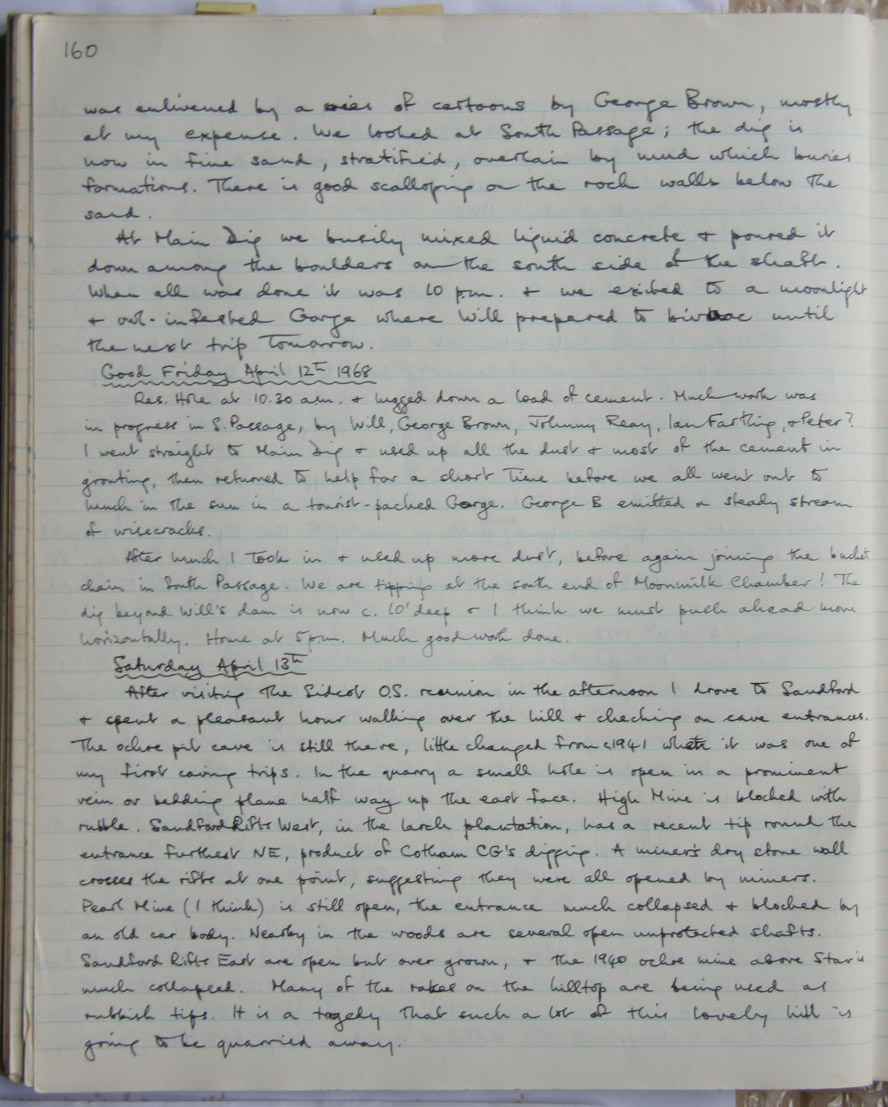 160
was enlivened by a series of cartoons by George Brown, mostly
at my expense. We looked at South Passage; the dig is
now in fine sand, stratified, overlain by mud which buries
formations. There is good scalloping on the rock walls below the
sand.
At Main Dig we busily mixed liquid concrete + poured it
down among the boulders on the south side of the shaft.
When all was done it was 10 pm. + we exited to a moonlight
+ owl-infested Gorge where Will prepared to bivouac until
the next trip tomorrow.
Good Friday April 12th 1968
Res. Hole at 10.30 am. + lugged down a load of cement. Much work was
in progress in S. Passage, by Will, George Brown, Johnny Reay, Ian Farthing, + Peter?
I went straight to Main Dig + used up all the dust + most of the cement in
grouting, then returned to help for a short time before we all went out to
lunch in the sun in a tourist-packed Gorge. George B emitted a steady stream
of wisecracks.
After lunch I took in + used up more dust, before again joining the bucket
chain in South Passage. We are tipping at the south end of Moonmilk Chamber! The
dig beyond Will's dam is now c. 10' deep + I think we must push ahead more
horizontally. Home at 5 pm. Much good work done.
Saturday April 13th
After visiting the Sidcot O.S. reunion in the afternoon I drove to Sandford
+ spent a pleasant hour walking over the hill + checking on cave entrances.
The ochre pit cave is still there, little changed from c1941 when it was one of
my first caving trips. In the quarry a small hole is open in a prominent
vein or bedding plane half way up the east face. High Mine is blocked with
rubble. Sandford Rifts West, in the larch plantation, has a recent tip round the
entrance furthest NE, product of Cotham CG's digging. A miner's dry stone wall
crosses the rifts at one point, suggesting they were all opened by miners.
Pearl Mine (I think) is still open, the entrance much collapsed + blocked by
an old car body. Nearby in the woods are several open unprotected shafts.
Sandford Rifts East are open but over grown, + the 1940 ochre mine above Star is
much collapsed. Many of the rakes on the hilltop are being used as
rubbish tips. It is a tragedy that such a lot of this lovely hill is
going to be quarried away.